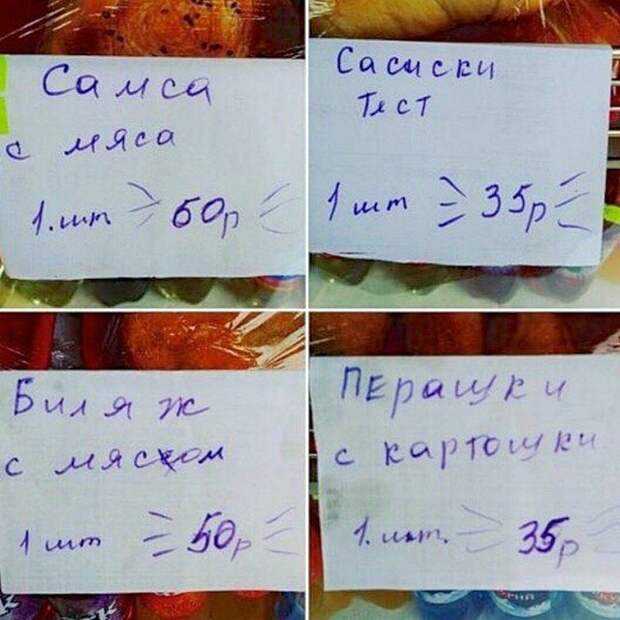 Самса
с мяса
1.шт 60р
Сасиски
Тест
1 шт 35р
Биляж
с мясом
1 шт 50р
ПЕрашки
с картошки
1.шт. 35р